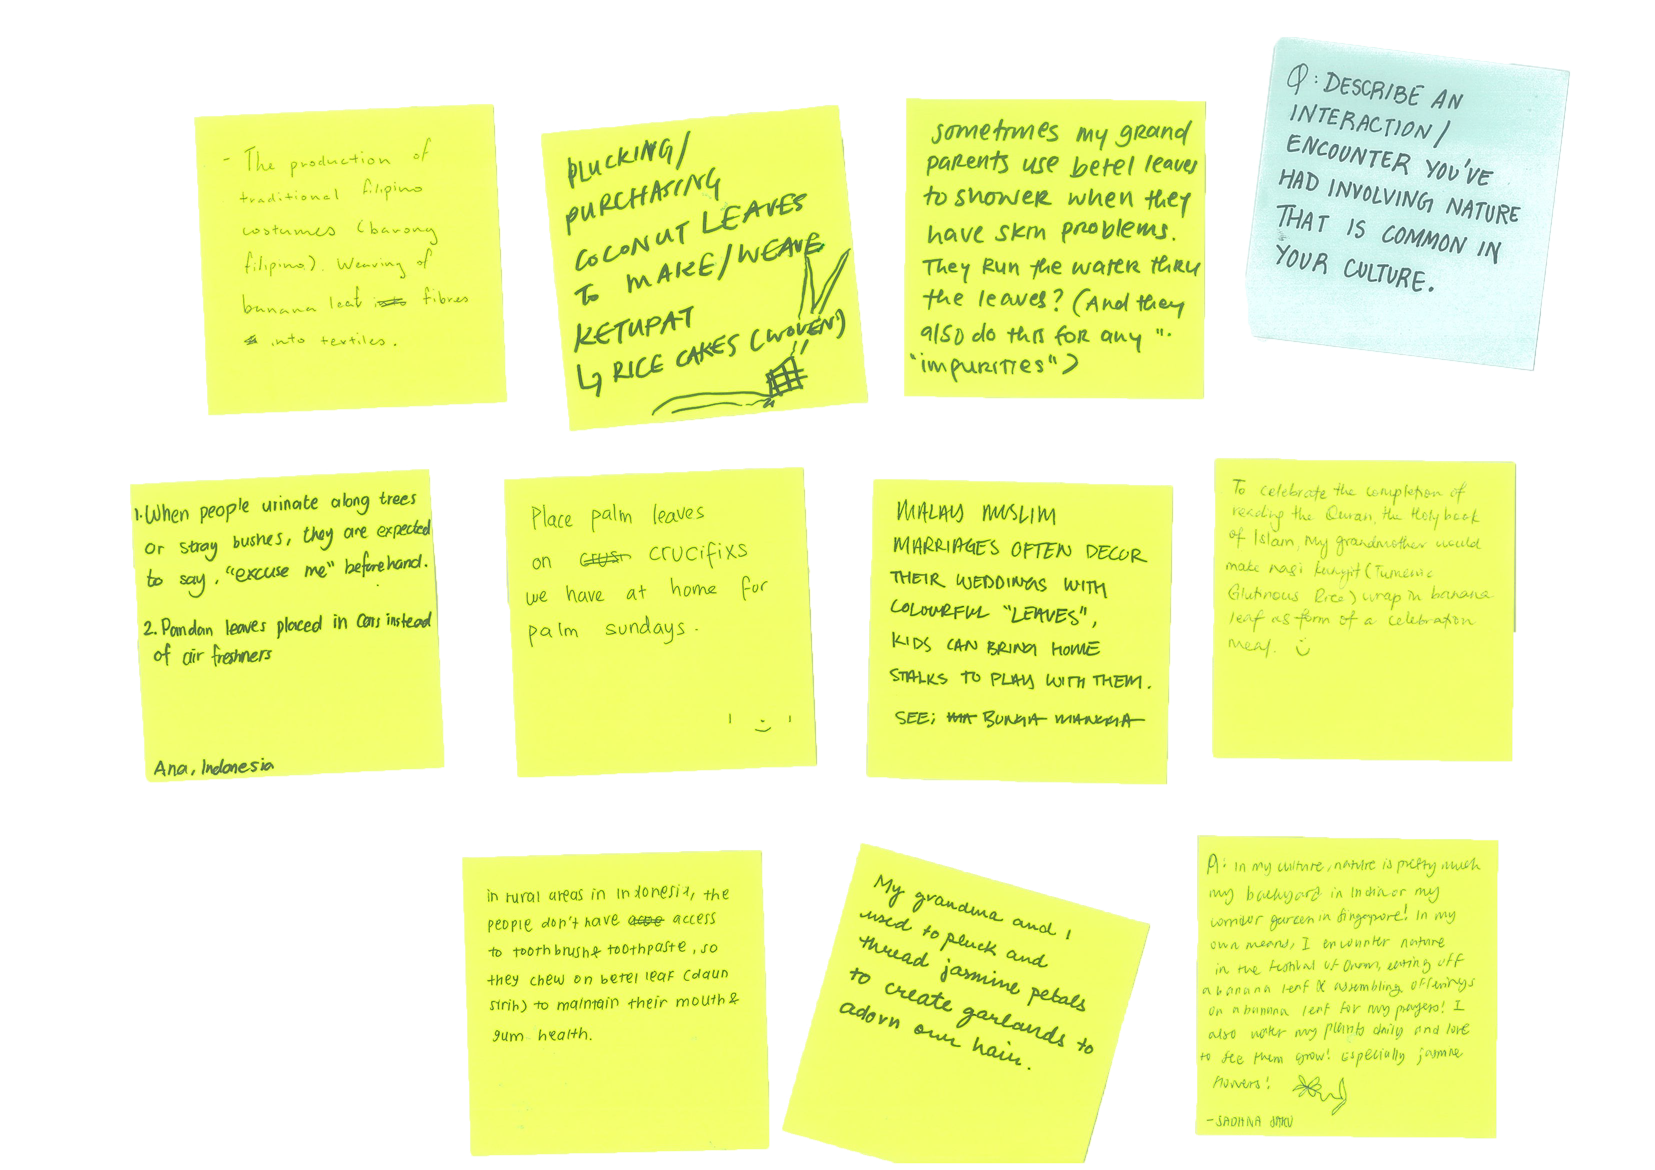 - The production of
traditional filipino
costumes (barong
filipino). Weaving of
banana leaf fibres
into textiles.
PLUCKING/
PURCHASING
COCONUT LEAVES
TO MAKE/WEAVE
KETUPAT
↳ RICE CAKES (WOVEN)
sometimes my grand
parents use betel leaves
to shower when they
have skin problems.
They run the water thru
the leaves? (And they
also do this for any "
"impurities")
Q: DESCRIBE AN
INTERACTION/
ENCOUNTER YOU'VE
HAD INVOLVING NATURE
THAT IS COMMON IN
YOUR CULTURE.
1. When people urinate along trees
or stray bushes, they are expected
to say, "excuse me" beforehand.
2. Pandan leaves placed in cars instead
of air freshners
Ana, Indonesia
Place palm leaves
on crucifixs
we have at home for
palm sundays.
MALAY MUSLIM
MARRIAGES OFTEN DECOR
THEIR WEDDINGS WITH
COLOURFUL "LEAVES",
KIDS CAN BRING HOME
STALKS TO PLAY WITH THEM.
SEE; BUNGA MANGGA
To celebrate the completion of
reading the Quran, the Holy book
of Islam, my grandmother would
make nasi kunyit (Tumeric
Glutinous Rice) wrap in banana
leaf as form of a celebration
meal.
in rural areas in Indonesia, the
people don't have access
to toothbrush & toothpaste, so
they chew on betel leaf (daun
sirih) to maintain their mouth &
gum health.
My grandma and I
used to pluck and
thread jasmine petals
to create garlands to
adorn our hair.
A: In my culture, nature is pretty much
my backyard in India or my
corridor garden in Singapore! In my
own means, I encounter nature
in the festival of Onam, eating off
a banana leaf & assembling offerings
on a banana leaf for my prayers! I
also water my plants daily and love
to see them grow! Especially jasmine
flowers!
- SADHNA